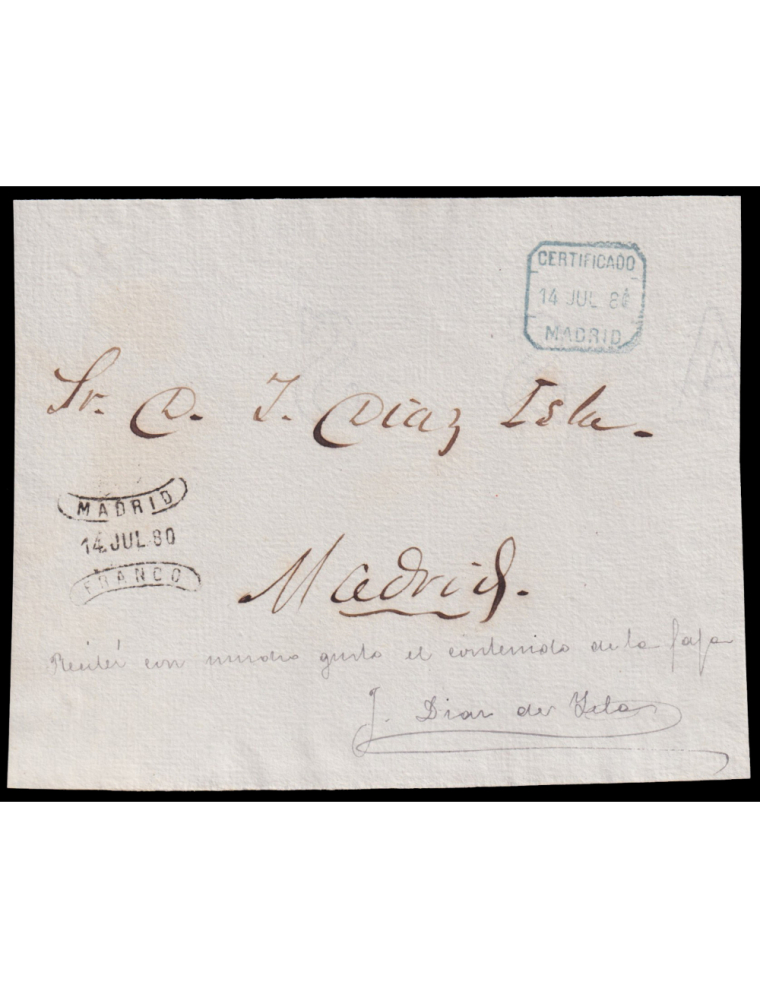 CERTIFICADO
14 JUL 80
MADRID
Sr. D. J. Díaz Isla.
MADRID
14 JUL 80
FRANCO
Madrid.
Recibi con mucho gusto el contenido de la faja
J. Diaz de Isla